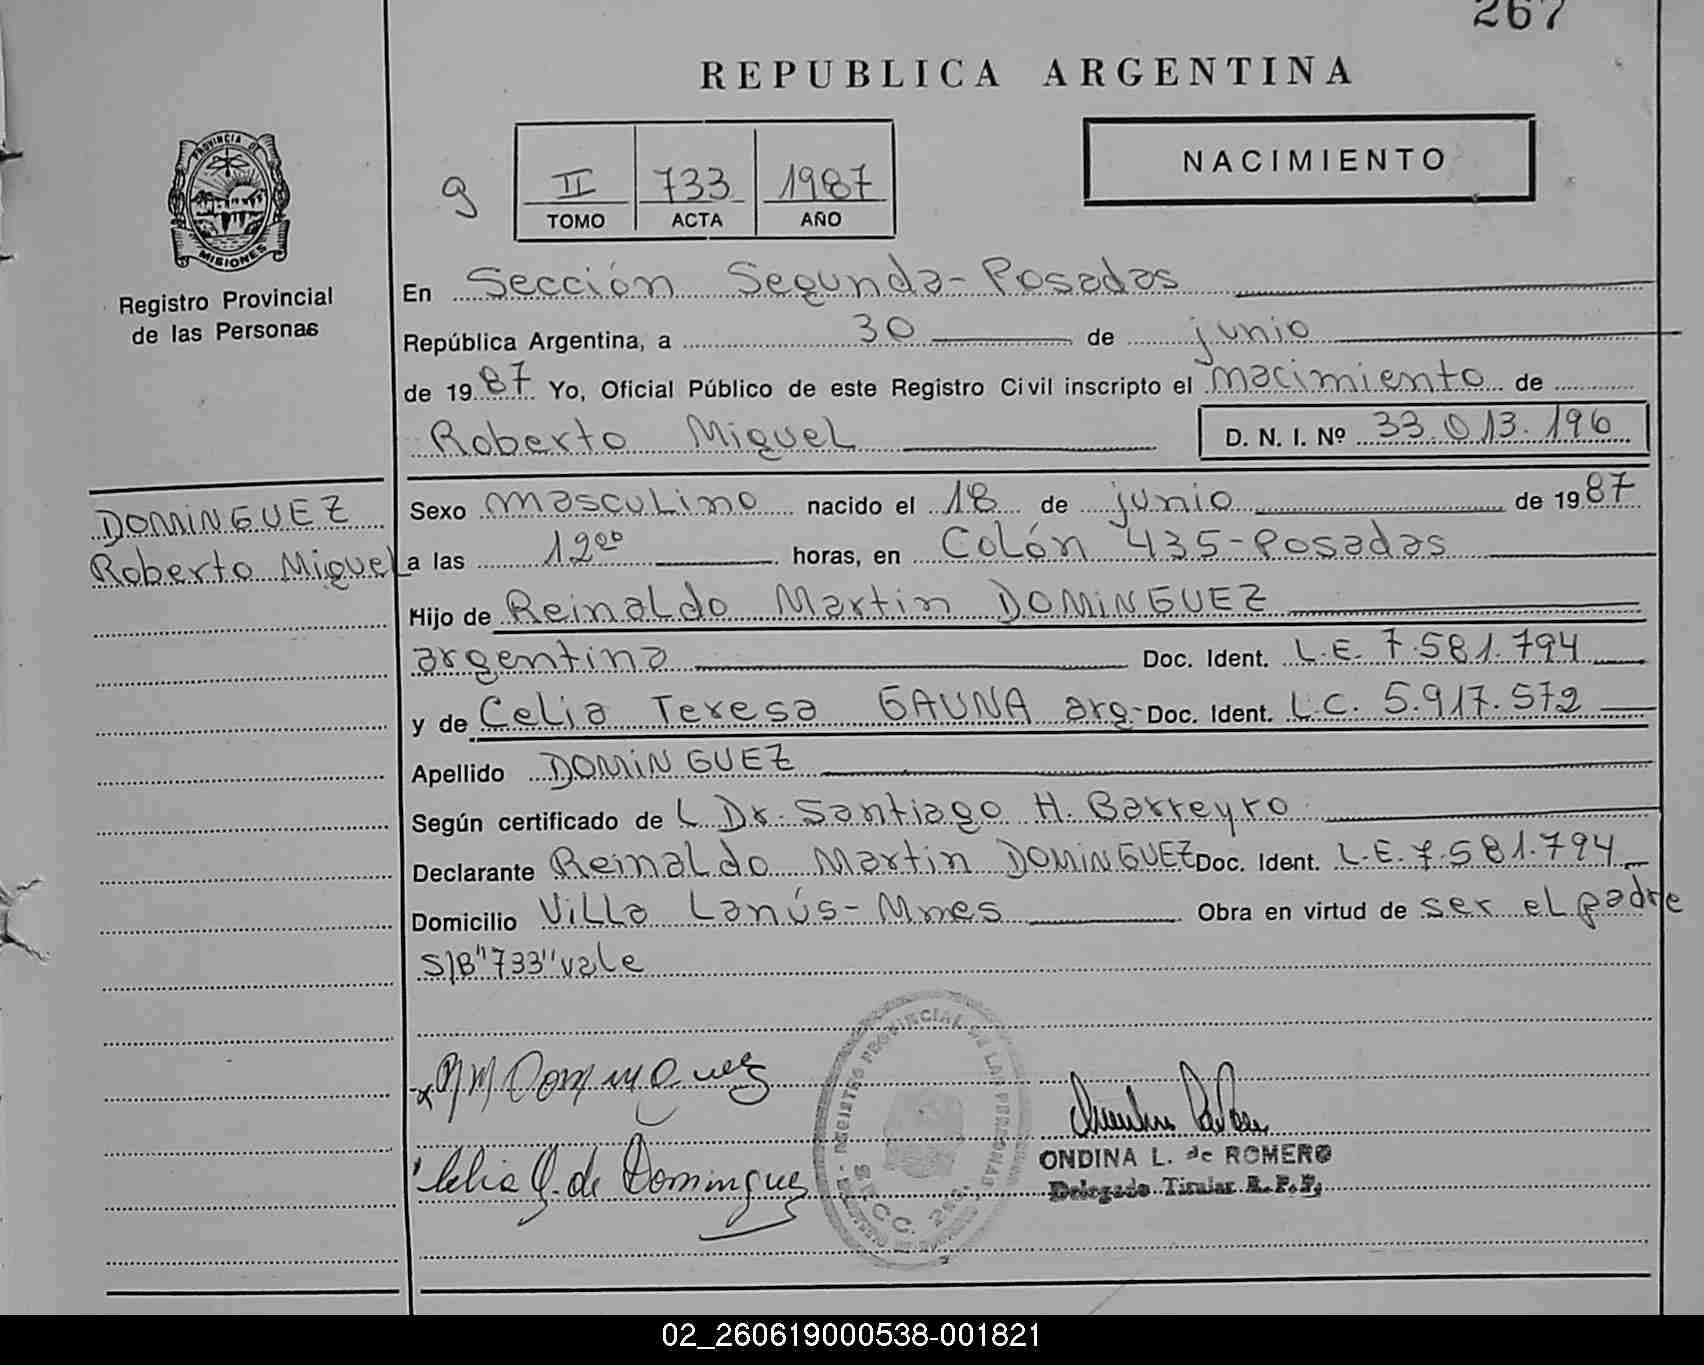 267
REPUBLICA ARGENTINA
NACIMIENTO
9
II 733 1987
TOMO ACTA AÑO
PROVINCIA DE MISIONES
Registro Provincial
de las Personas
En Sección Segunda - Posadas
República Argentina, a 30 de junio
de 1987 Yo, Oficial Público de este Registro Civil inscripto el nacimiento de
Roberto Miguel D. N. I. Nº 33.013.196
DOMINGUEZ
Roberto Miguel
Sexo masculino nacido el 18 de junio de 1987
a las 12⁰⁰ horas, en Colón 435 - Posadas
Hijo de Reinaldo Martin DOMINGUEZ
argentina Doc. Ident. L.E. 7.581.794
y de Celia Teresa GAUNA arg- Doc. Ident. L.C. 5.917.572
Apellido DOMINGUEZ
Según certificado de L Dr. Santiago H. Barreyro
Declarante Reinaldo Martin DOMINGUEZ Doc. Ident. L.E. 7.581.794
Domicilio Villa Lanús - Mnes Obra en virtud de ser el padre
S/B "733" vale
R M Dominguez
Celia G. de Dominguez
REGISTRO PROVINCIAL DE LAS PERSONAS
SECC. 2da.
ONDINA L. de ROMERO
Delegado Titular R. P. P.
02_260619000538-001821